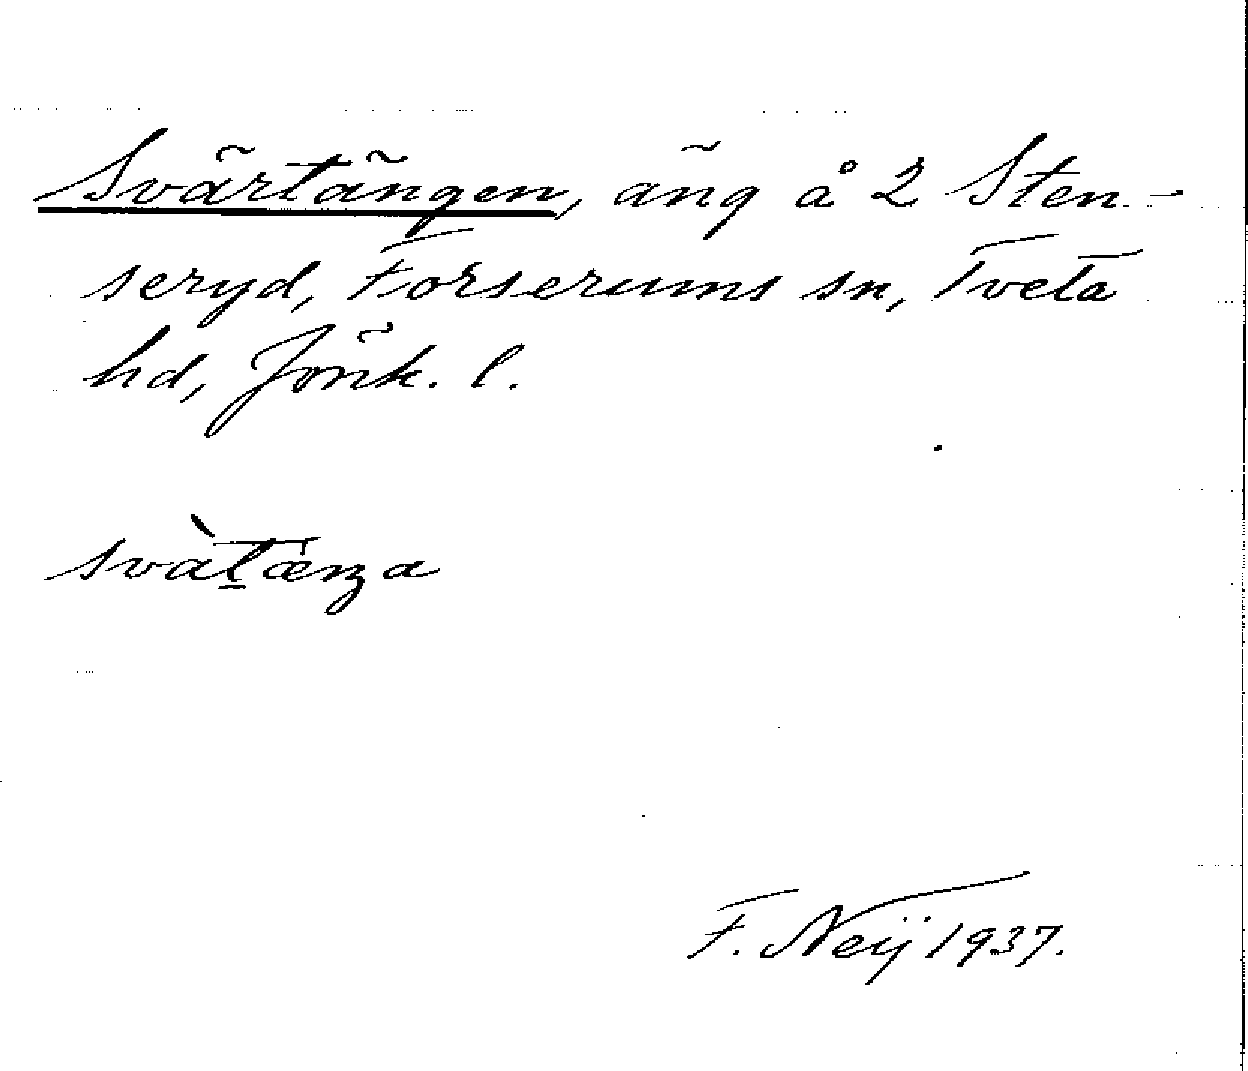 Svärtängen, äng å 2 Sten-
seryd, Forserums sn, Tveta
hd, Jönk. l.
svàt̠æŋa
F. Neij 1937.